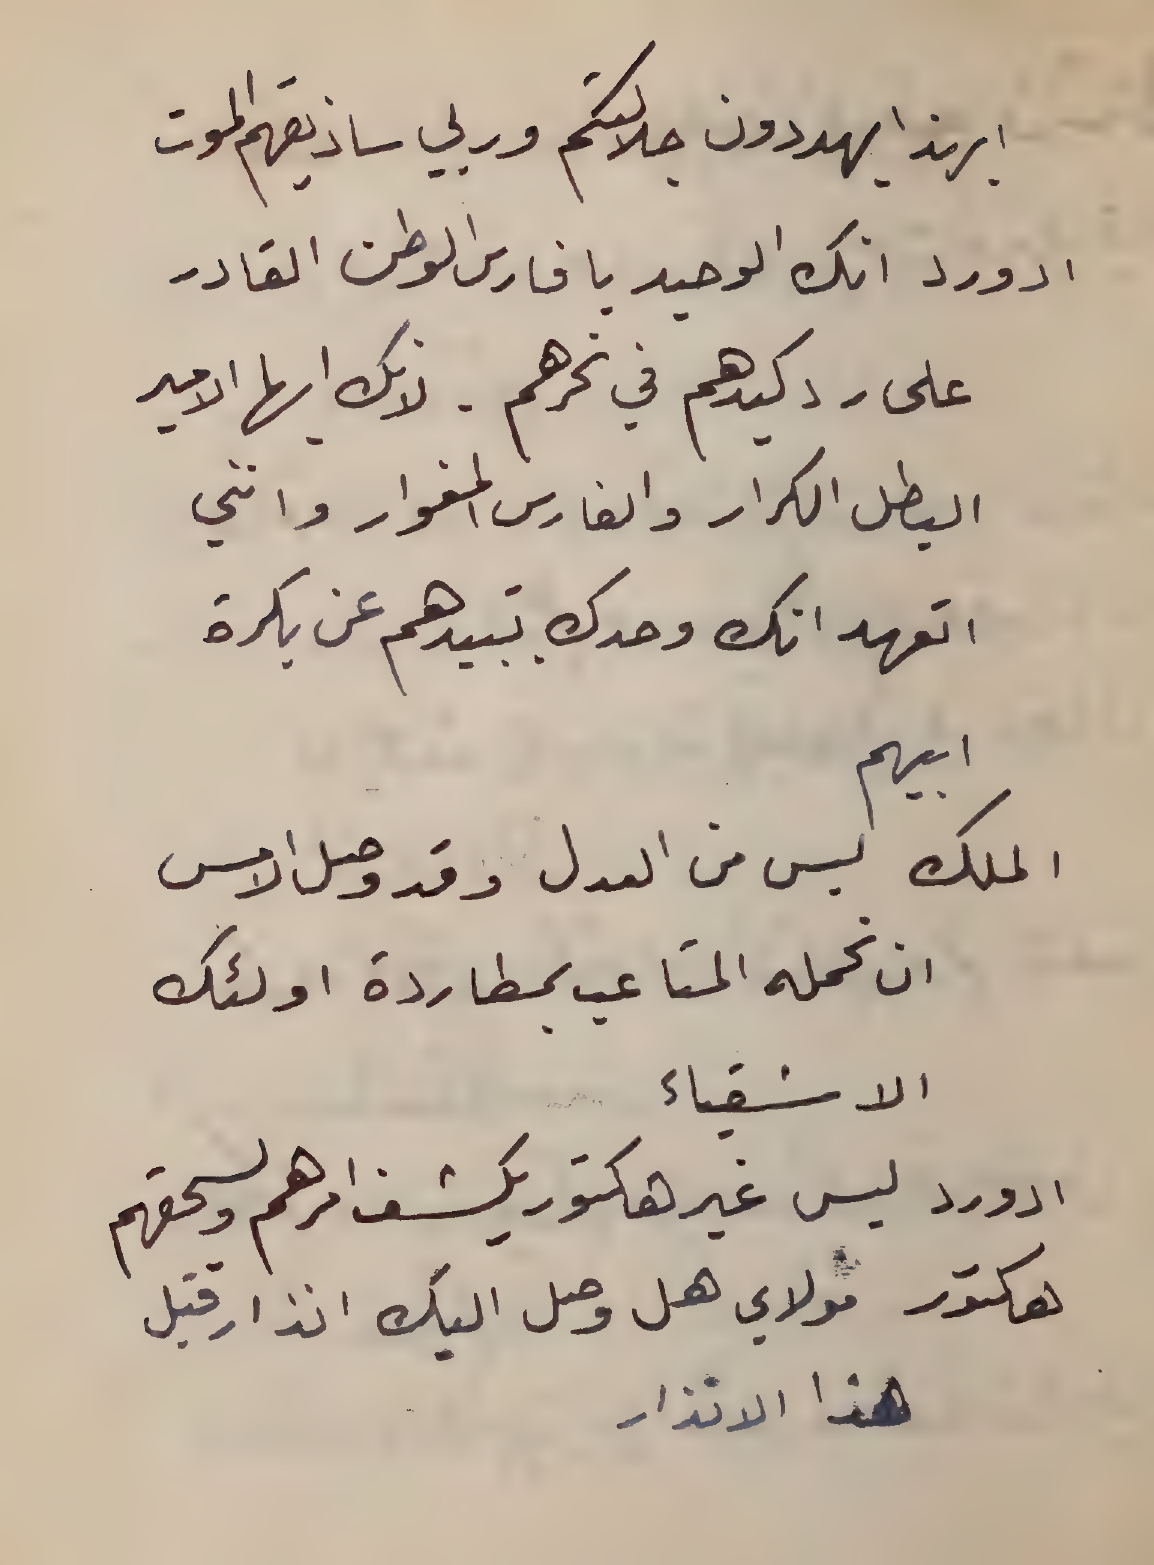 ابهذا يهددون جلالتكم وربي ساذيقهم الموت
ادورد انك الوحيد يا فارس الوطن القادر
على رد كيدهم في نحرهم . لانك ايها الامير
البطل الكرار والفارس المغوار وانني
اتعهد انك وحدك تبيدهم عن بكرة
ابيهم
الملك ليس من العدل وقد وصل الامس
ان نحمله المتاعب بمطاردة اولئك
الاشقياء
ادورد ليس غير هكتور يكشف امرهم ويسحقهم
هكتور مولاي هل وصل اليك انذار قبل
هذا الانذار